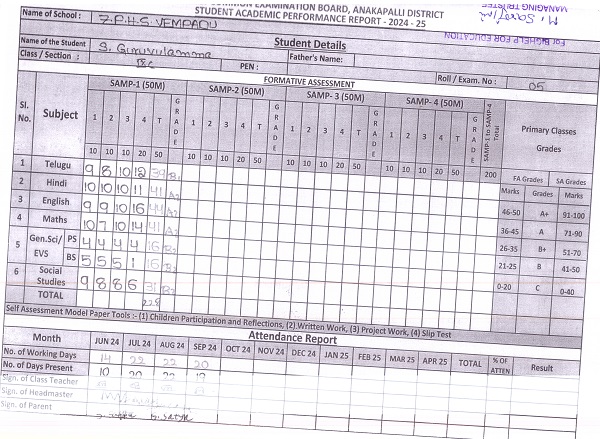 COMMON EXAMINATION BOARD, ANAKAPALLI DISTRICT
STUDENT ACADEMIC PERFORMANCE REPORT - 2024 - 25
MANAGING TRUSTEE
For BIGHELP FOR EDUCATION
Name of School : Z.P.H.S VEMPADU
Student Details
Name of the Student S. Guruvulamma Father's Name:
Class / Section : PEN : Roll / Exam. No : 05
FORMATIVE ASSESSMENT
Sl. No. Subject SAMP-1 (50M) GRADE SAMP-2 (50M) GRADE SAMP- 3 (50M) GRADE SAMP- 4 (50M) GRADE SAMP-1 to SAMP-4 Total Primary Classes Grades
1 2 3 4 T 1 2 3 4 T 1 2 3 4 T 1 2 3 4 T
10 10 10 20 50 10 10 10 20 50 10 10 10 20 50 10 10 10 20 50 200
FA Grades SA Grades
Marks Grades Marks
1 Telugu 9 8 10 12 39 B1
2 Hindi 10 10 10 11 41 A2
3 English 9 9 10 16 44 A2
4 Maths 10 7 10 14 41 A2
5 Gen.Sci/ EVS PS 4 4 4 4 16 B2
BS 5 5 5 1 16 B2
6 Social Studies 9 8 8 6 31 B1
TOTAL 228
46-50 A+ 91-100
36-45 A 71-90
26-35 B+ 51-70
21-25 B 41-50
0-20 C 0-40
Self Assessment Model Paper Tools :- (1) Children Participation and Reflections, (2).Written Work, (3) Project Work, (4) Slip Test
Attendance Report
Month JUN 24 JUL 24 AUG 24 SEP 24 OCT 24 NOV 24 DEC 24 JAN 25 FEB 25 MAR 25 APR 25 TOTAL % OF ATTEN Result
No. of Working Days 14 22 22 20
No. of Days Present 10 20 22
Sign. of Class Teacher
Sign. of Headmaster
Sign. of Parent